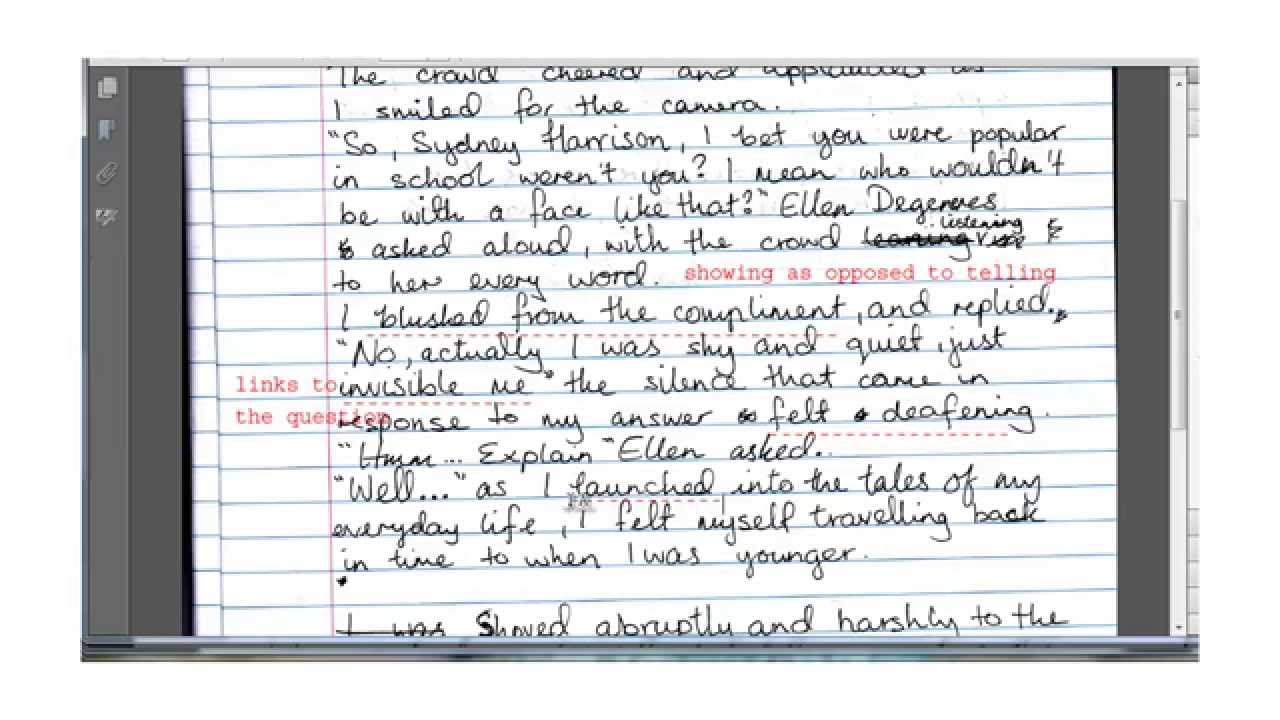 The crowd cheered and applauded as
I smiled for the camera.
"So, Sydney Harrison, I bet you were popular
in school weren't you? I mean who wouldn't
be with a face like that?" Ellen Degeneres
listening
asked aloud, with the crowd
to her every word. showing as opposed to telling
I blushed from the compliment, and replied.
"No, actually I was shy and quiet, just
links to invisible me" the silence that came in
the question response to my answer felt deafening.
"Hmm... Explain" Ellen asked.
"Well..." as I launched into the tales of my
everyday life, I felt myself travelling back
in time to when I was younger.
I was Shoved abruptly and harshly to the